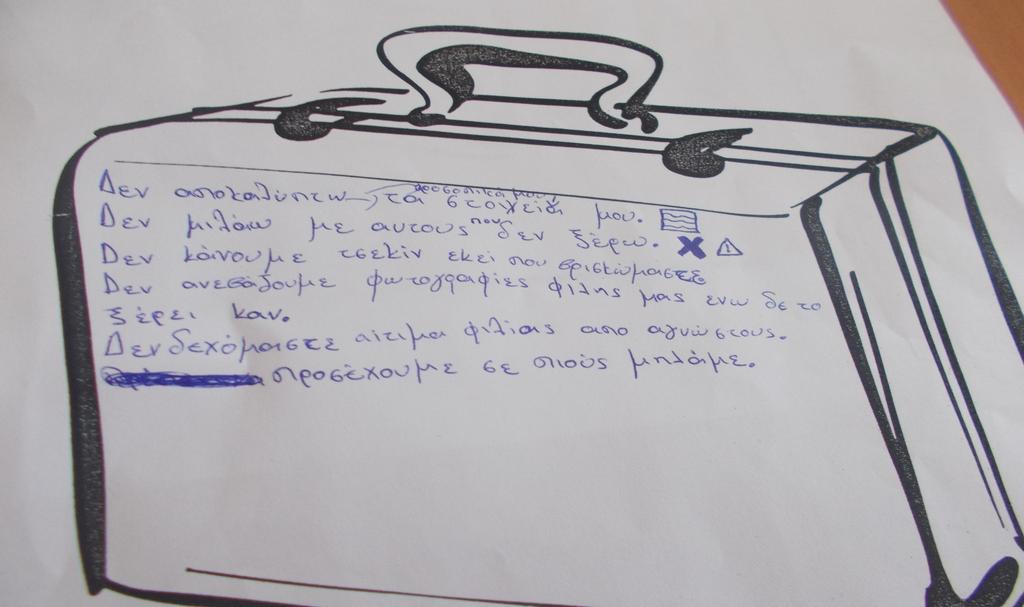 Δεν αποκαλύπτω τα προσοπικά μου στοιχεία μου.
Δεν μιλάω με αυτους που δεν ξέρω.
Δεν κάνουμε τσεκίν εκεί που βρισκώμαστε
Δεν ανεβάζουμε φωτογραφίες φίλης μας ενω δε το
ξέρει καν.
Δεν δεχόμαστε αίτιμα φιλίας απο αγνώστους.
προσέχουμε σε ποιούς μηλάμε.